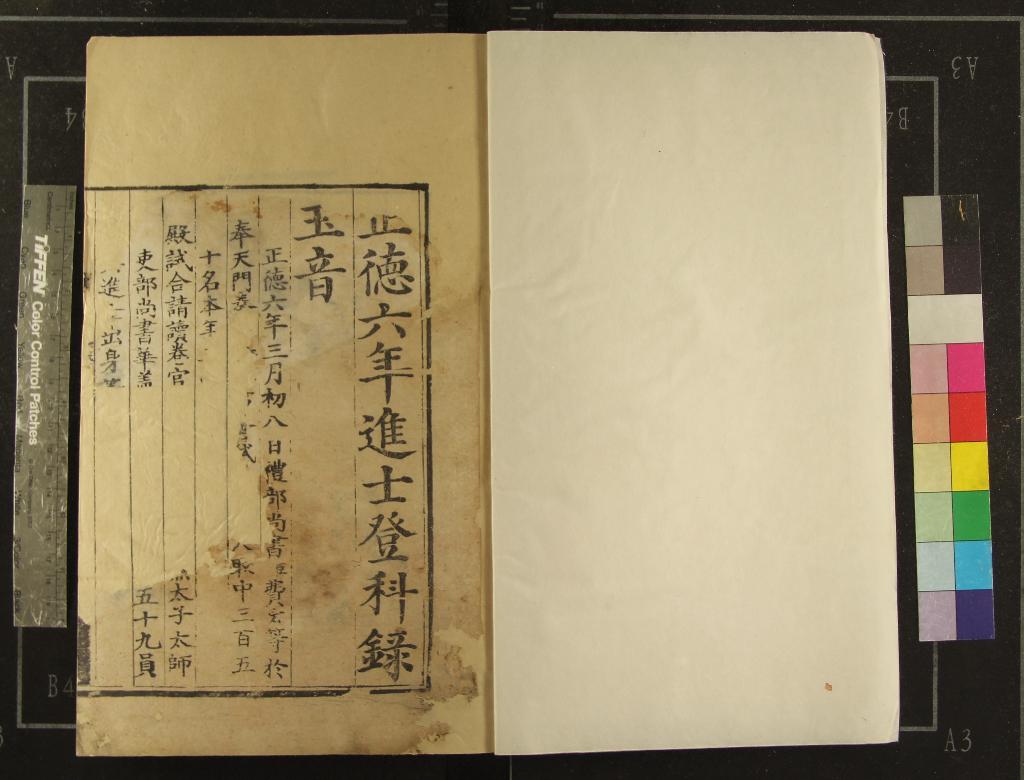 正德六年進士登科錄
玉音
正德六年三月初八日禮部尚書費宏等於
奉天門奏 八取中三百五
十名本年
殿試合請讀卷官 太子太師
吏部尚書華蓋 五十九員
進士出身
TIFFEN Color Control Patches
A3
B4
A3
B4
B4
A